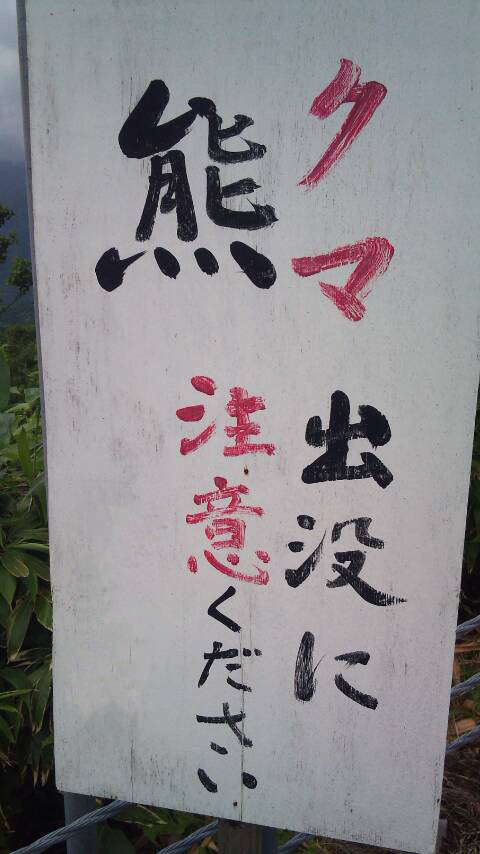 クマ出没に
注意ください
熊